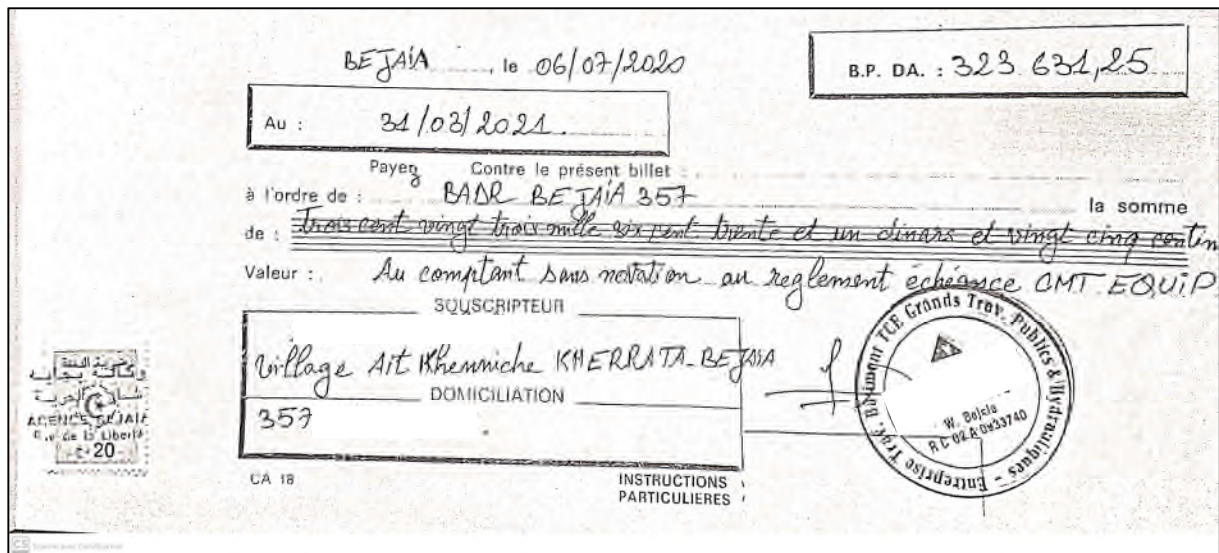 BEJAIA, le 06/07/2020
B.P. DA. : 323 631,25
Au : 31/03/2021
Payez Contre le présent billet :
à l'ordre de : BADR BEJAIA 357 la somme
de : trois cent vingt trois mille six cent trente et un dinars et vingt cinq centim
Valeur : Au comptant sans notation au reglement échéance CMT EQUIP
SOUSCRIPTEUR
Village Ait Khenniche KHERRATA-BEJAIA
DOMICILIATION
357
CA 18
INSTRUCTIONS
PARTICULIERES
Entreprise Trav. Bâtiment TCE Grands Trav. Publics & Hydrauliques -
W. Bejaia
R C 02 A 0833740
AGENCE BEJAIA
R. de la Liberté
20
CS